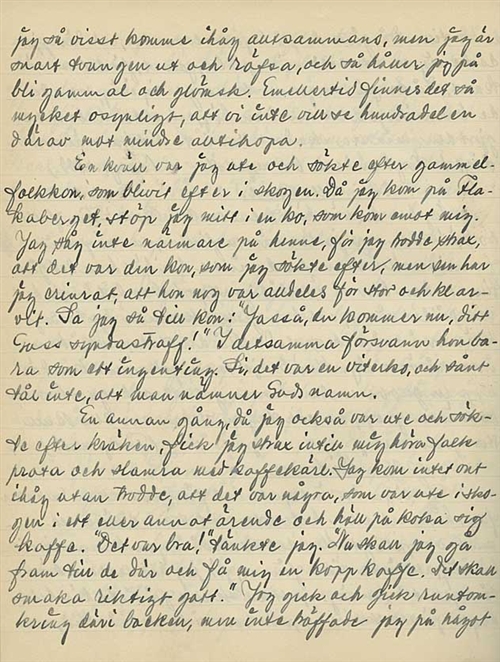 jag så visst komme ihåg alltsammans, men jag är
snart tvungen ut och räfsa, och så håller jag på
bli gammal och glömsk. Emellertid finnes det så
mycket osynligt, att vi inte vill se hundradelen
därav mot mindre alltihopa.
En kväll var jag ute och sökte efter gammel-
folkkon, som blivit efter i skogen. Då jag kom på Fla-
kaberget, stöp jag mitt i en ko, som kom emot mig.
Jag såg inte närmare på henne, för jag trodde strax,
att det var den kon, som jag sökte efter, men sen har
jag erinrat, att hon nog var alldeles för stor och klar-
vit. Sa jag så till kon: "Jasså, du kommer nu, ditt
Guss syndastraff." I detsamma försvann hon ba-
ra som ett ingenting. Si, det var en viterko, och sånt
tål inte, att man nämner Guds namn.
En annan gång, då jag också var ute och sök-
te efter kräken, fick jag strax intill mig höra folk
prata och slamra med kaffekärl. Jag kom intet ont
ihåg utan trodde, att det var några, som var ute i sko-
gen i ett eller annat ärende och höll på koka sig
kaffe. "Det var bra!" tänkte jag. "Nu skall jag gå
fram till de där och få mig en kopp kaffe. Det skall
smaka riktigt gott." Jag gick och gick runtom-
kring däri backen, men inte träffade jag på något